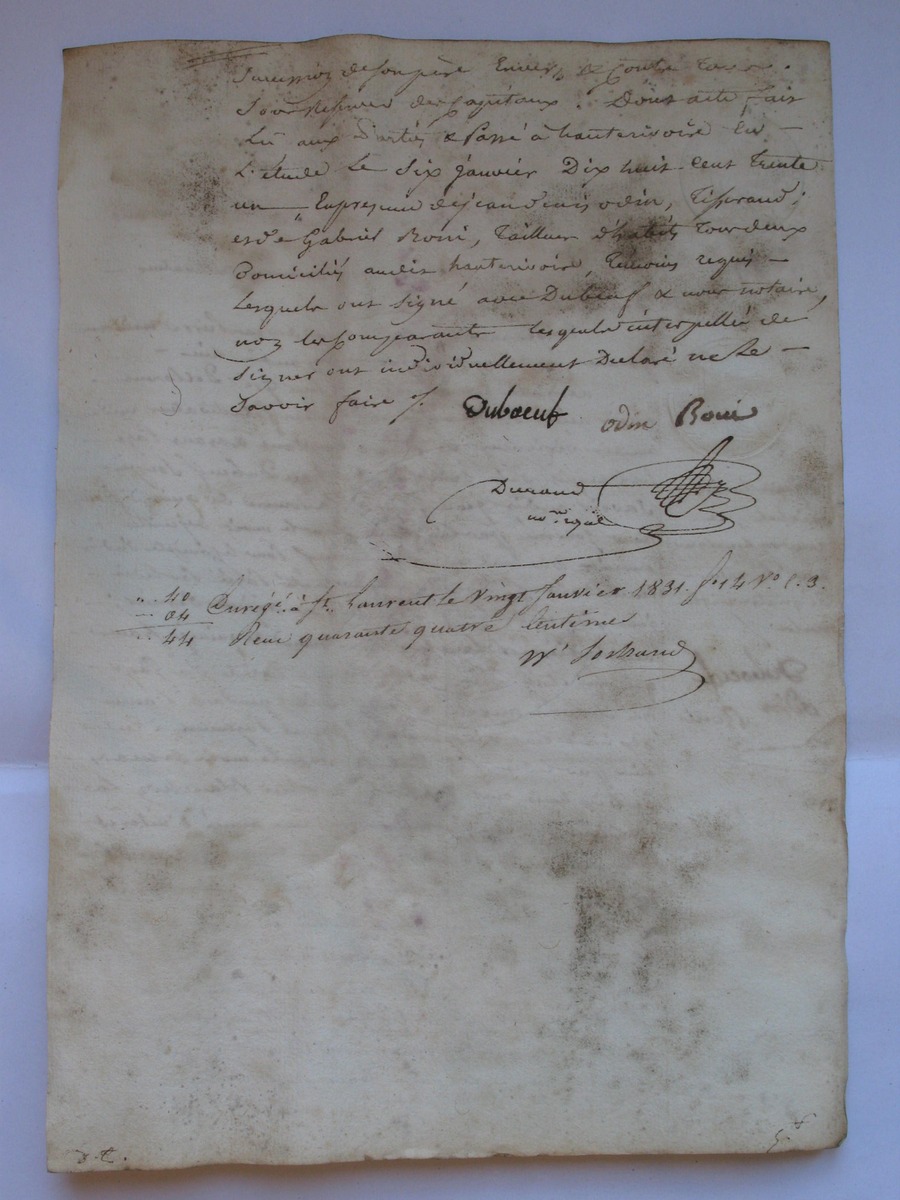 succession de son père Envers & Contre tous.
des Capitaux. Dont acte fait
Lu aux Parties & Passé à hauterivoire En
L'étude Le Six Janvier Dix huit Cent Trente
un En présence de jean odin, Tisserand,
et de Gabriel Roni, Tailleur d'habits Tous deux
Domiciliés audit hauterivoire, Temoins requis
Lesquels ont signé avec Duboeuf & nous notaire,
non les Comparants lesquels interpellés de
Signer ont individuellement Déclaré ne Le
Savoir faire /.
Duboeuf odin Roni
Durand
no.re royal
40
04
44
Enregé. à St. Laurent le Vingt Janvier 1831. fo 14 Vo C. 3.
Recu quarante quatre Centimes